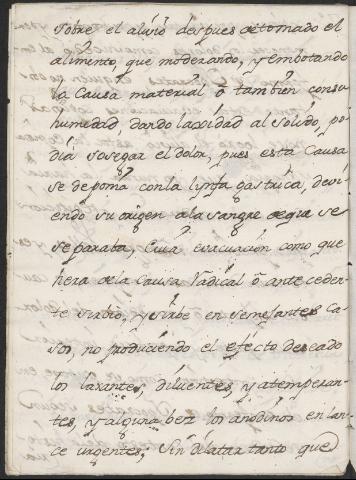 Sobre el alivio despues de tomado el
alimento, que moderando, y embotando
la Causa material ô tambien consu
humedad, dando laxidad al Solido, po-
dia Sosegar el dolor, pues esta Causa
se deponia conla lynfa gastrica, devi-
endo su origen ala sangre de qia se
separaba, Cuia evacuacion como que
hera dela Causa Radical ô anteceden-
te sirbio, y sirbe en Semejantes Ca-
sos, no produciendo el efecto deseado
los laxantes, diluentes, y atemperan-
tes, y alguna bez los anodinos en lan-
ce urgentes; Sin dilatar tanto que